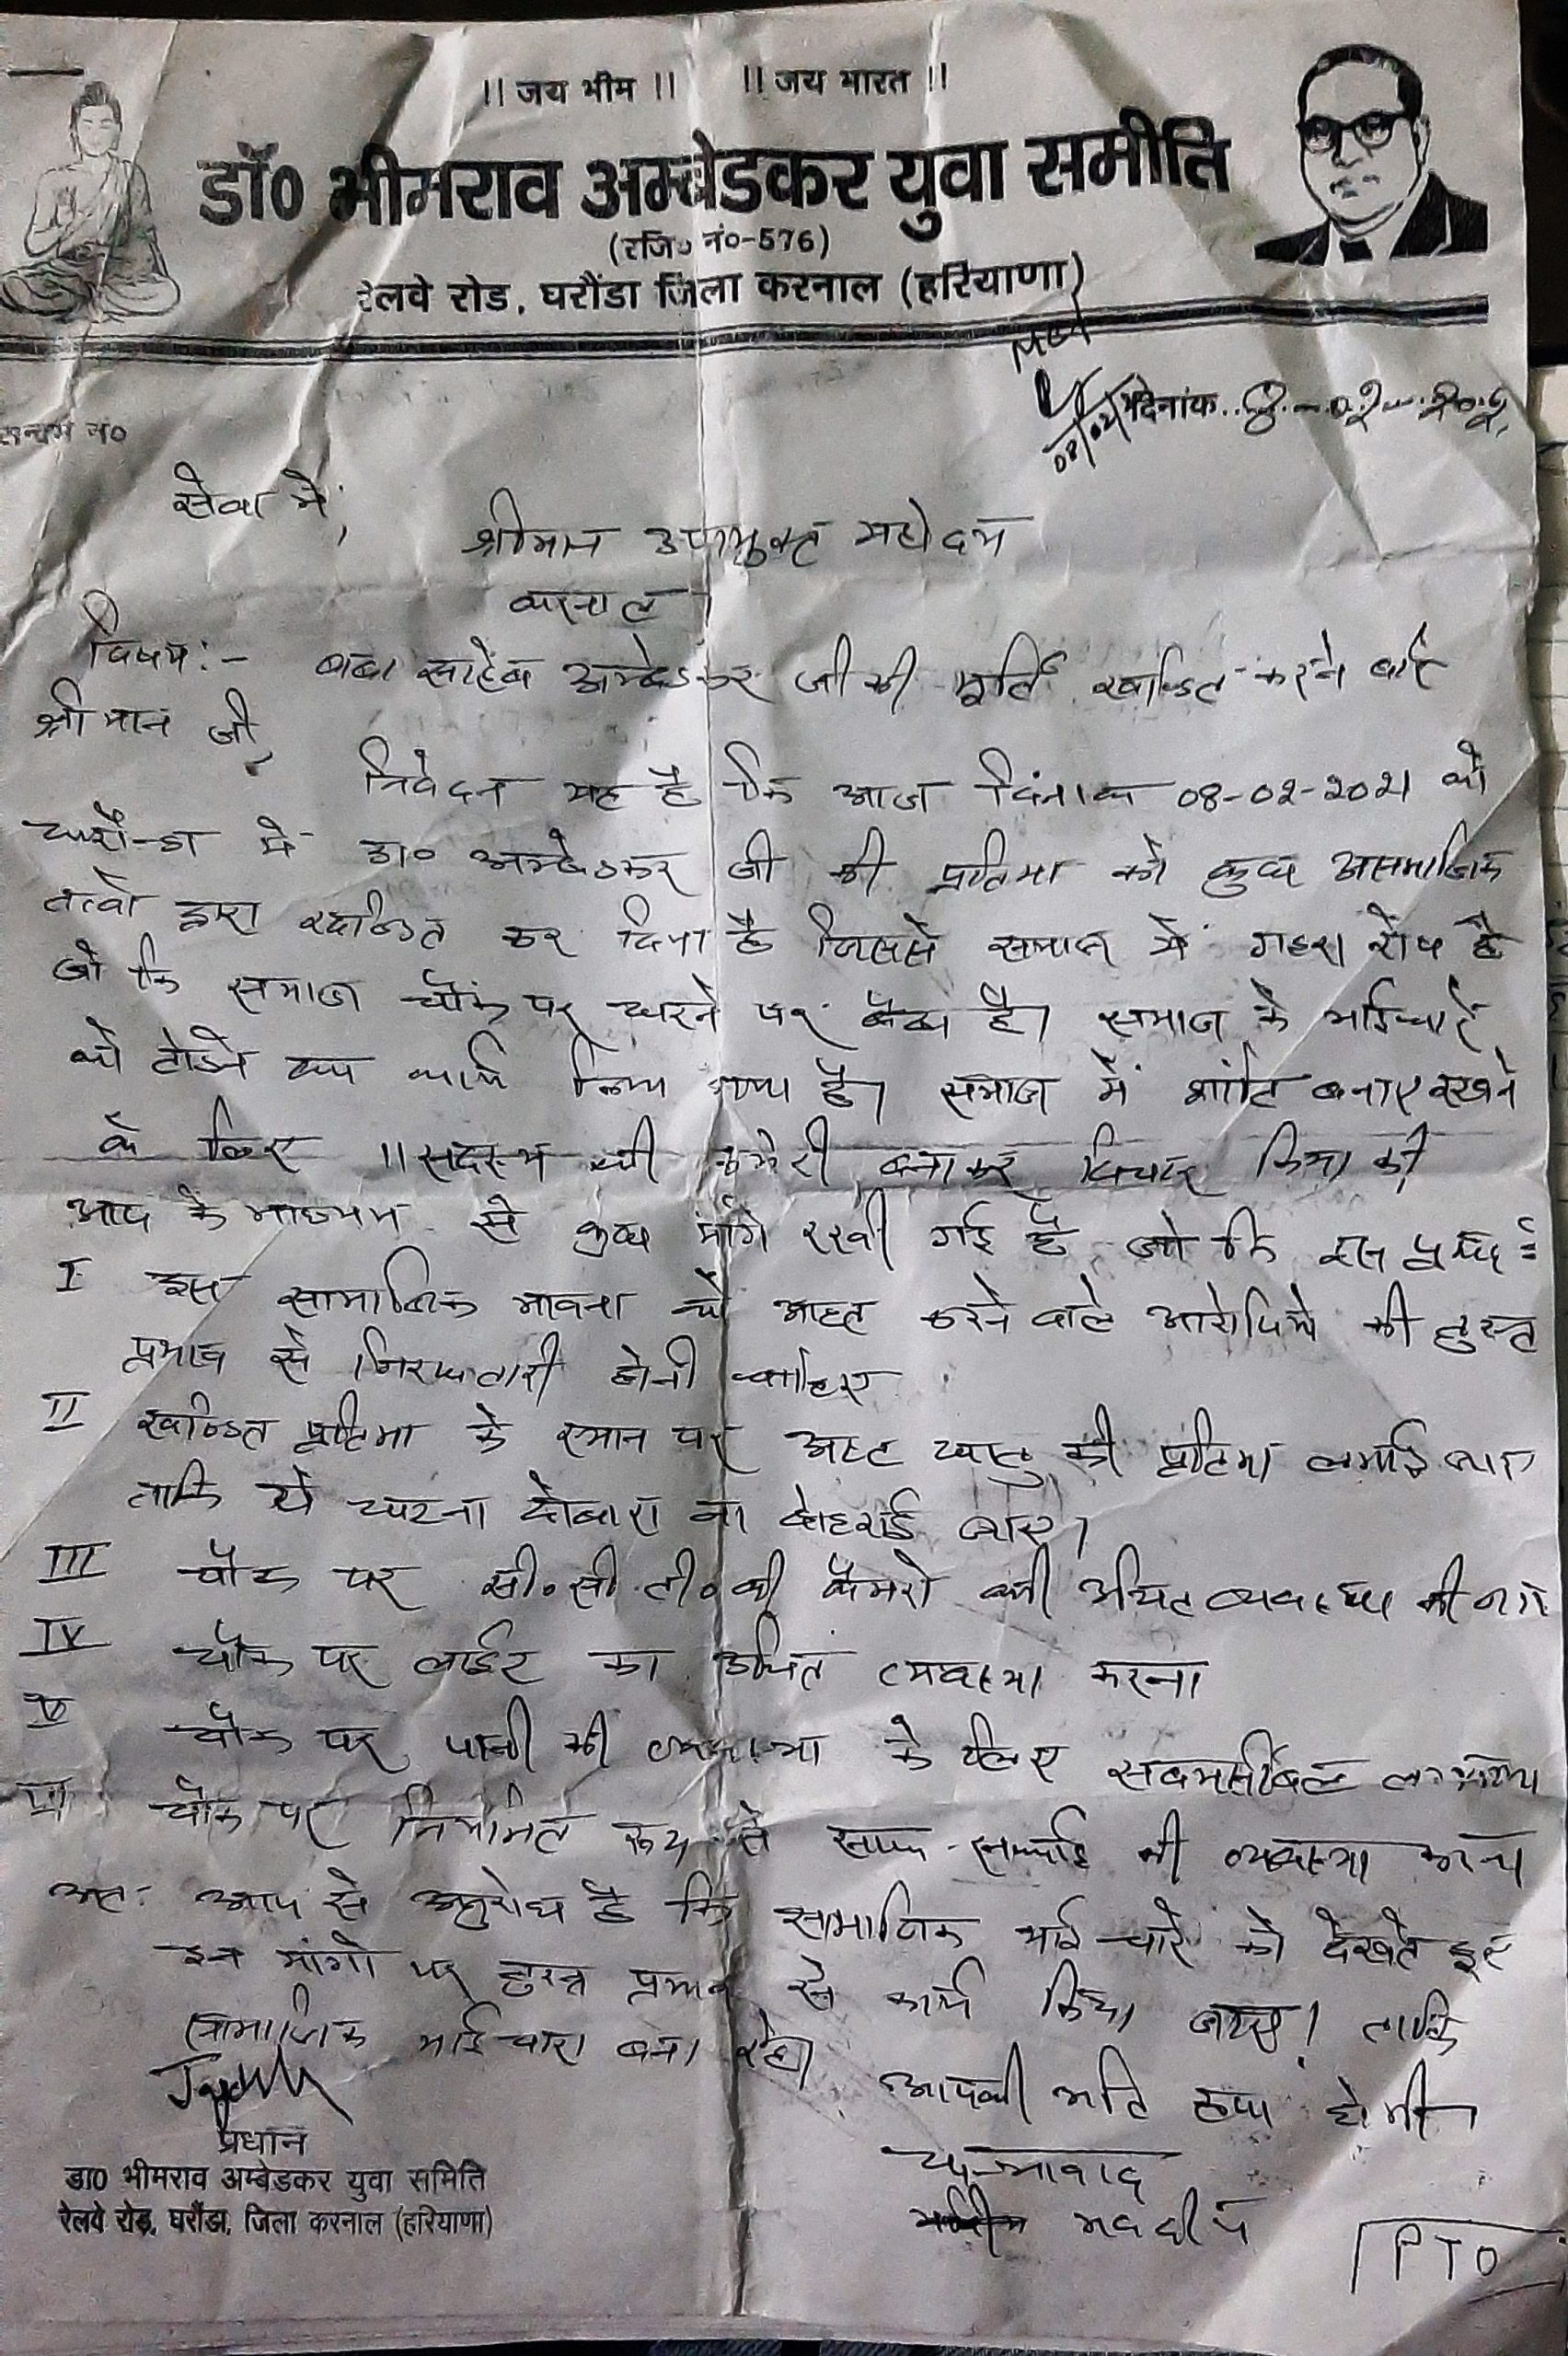 || जय भीम || || जय भारत ||
डॉ० भीमराव अम्बेडकर युवा समीति
(रजि० नं०-576)
रेलवे रोड, घरौंडा जिला करनाल (हरियाणा)
08/02
दिनांक 8-02-202
सेवा में,
श्रीमान उपायुक्त महोदय
करनाल।
विषय:- बाबा साहेब अम्बेडकर जी की मूर्ति खण्डित करने बारे
श्रीमान जी,
निवेदन यह है कि आज दिंनाक 08-02-2021 को
घरौन्डा में डा० अम्बेडकर जी की प्रतिमा को कुछ असमाजिक
तत्वो द्वारा खण्डित कर दिया है जिससे समाज में गहरा रोष है
जो कि समाज चौंक पर धरने पर बैठा है। समाज के भाईचारे
को तोडने का कार्य किया गया है। समाज में शांति बनाए रखने
के लिए 11 सदस्य की कमेटी बनाकर विचार किया की
आप के माध्यम से कुछ मांगे रखी गई है जो कि इस प्रकार है:
I इस सामाजिक भावना को आहत करने वाले आरोपियो की तुरन्त
प्रभाव से गिरफ्तारी होनी चाहिए
II खण्डित प्रतिमा के स्थान पर अष्ट धातु की प्रतिमा लगाई जाए
ताकि ये घटना दोबारा ना दोहराई जाए।
III चौंक पर सी.सी.टी.वी कैमरो की उचित व्यवस्था की जाए
IV चौंक पर लाईट का उचित व्यवस्था करना
V चौंक पर पानी की व्यवस्था के लिए सबमर्सीबल लगवाना
VI चौंक पर नियमित रूप से साफ-सफाई की व्यवस्था करना
अत: आप से अनुरोध है कि सामाजिक भाई चारे को देखते हुए
इन मांगो पर तुरन्त प्रभाव से कार्य किया जाए! ताकि
सामाजिक भाईचारा बना रहे।
आपकी अति कृपा होगी।
प्रधान
डा० भीमराव अम्बेडकर युवा समिति
रेलवे रोड़, घरौंडा, जिला करनाल (हरियाणा)
धन्यावाद
PTO